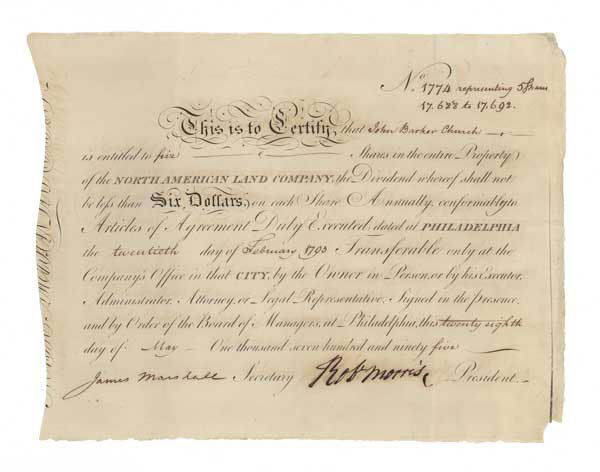 No. 1774 representing 5 Shares
17.688 to 17.692.
This is to Certify, that John Barker Church
is entitled to five Shares in the entire Property
of the NORTH AMERICAN LAND COMPANY, the Dividend whereof shall not
be less than Six Dollars, on each Share Annually, conformably to
Articles of Agreement Duly Executed, dated at PHILADELPHIA
the twentieth day of February 1795 Transferable only at the
Company's Office in that CITY, by the Owner in Person, or by his Executor,
Administrator, Attorney, or Legal Representative. Signed in the presence
and by Order of the Board of Managers, at Philadelphia, this twenty eighth
day of May One thousand seven hundred and ninety five
James Marshall Secretary Rob Morris President